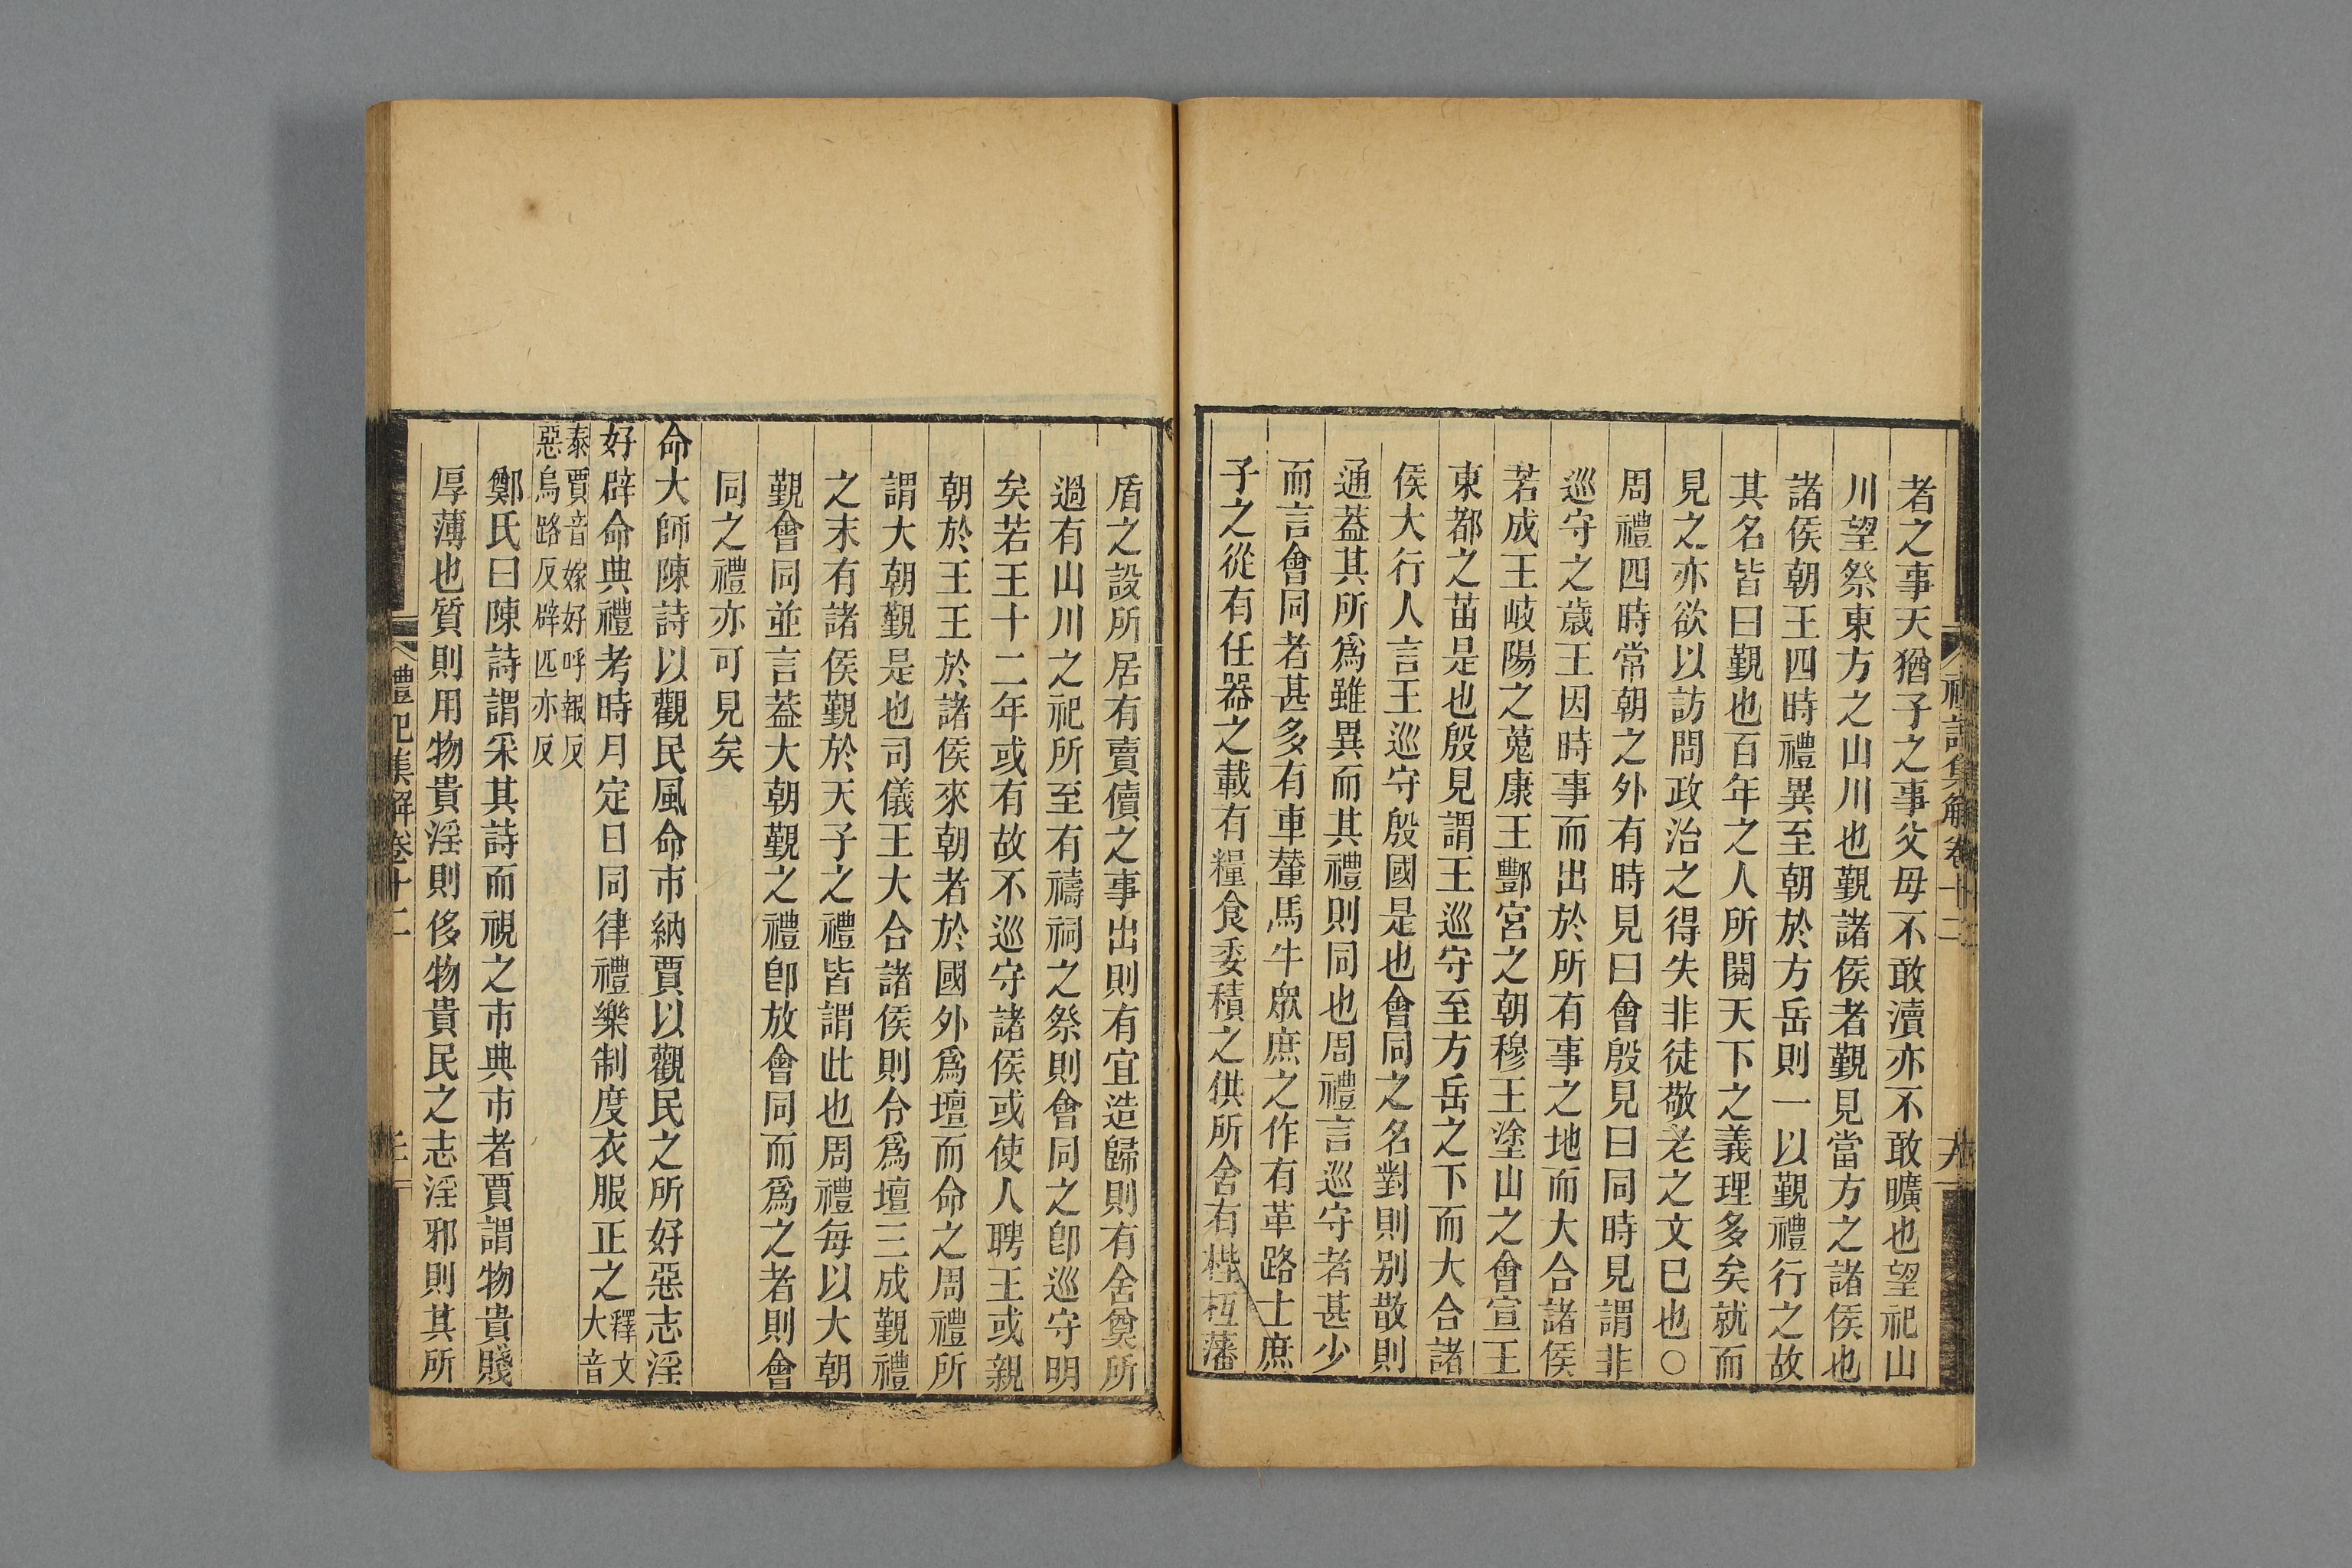 禮記集解卷十二
者之事天猶子之事父母不敢瀆亦不敢曠也望祀山
川望祭東方之山川也覲諸侯者覲見當方之諸侯也
諸侯朝王四時禮異至朝於方岳則一以覲禮行之故
其名皆曰覲也百年之人所閱天下之義理多矣就而
見之亦欲以訪問政治之得失非徒敬老之文已也○
周禮四時常朝之外有時見曰會殷見曰同時見謂非
巡守之歲王因時事而出於所有事之地而大合諸侯
若成王岐陽之蒐康王酆宮之朝穆王塗山之會宣王
東都之苗是也殷見謂王巡守至方岳之下而大合諸
侯大行人言王巡守殷國是也會同之名對則别散則
通葢其所爲雖異而其禮則同也周禮言巡守者甚少
而言會同者甚多有車輦馬牛眾庶之作有革路士庶
子之從有任器之載有糧食委積之供所舍有梐枑藩
盾之設所居有賣儥之事出則有宜造歸則有舍奠所
過有山川之祀所至有禱祠之祭則會同之卽巡守明
矣若王十二年或有故不巡守諸侯或使人聘王或親
朝於王王於諸侯來朝者於國外爲壇而命之周禮所
謂大朝覲是也司儀王大合諸侯則令爲壇三成覲禮
之末有諸侯覲於天子之禮皆謂此也周禮每以大朝
覲會同並言葢大朝覲之禮卽放會同而爲之者則會
同之禮亦可見矣
命大師陳詩以觀民風命市納賈以觀民之所好惡志淫
好辟命典禮考時月定日同律禮樂制度衣服正之釋文大音
泰賈音嫁好呼報反惡烏路反辟匹亦反
鄭氏曰陳詩謂采其詩而視之市典市者賈謂物貴賤
厚薄也質則用物貴淫則侈物貴民之志淫邪則其所
禮記集解卷十二